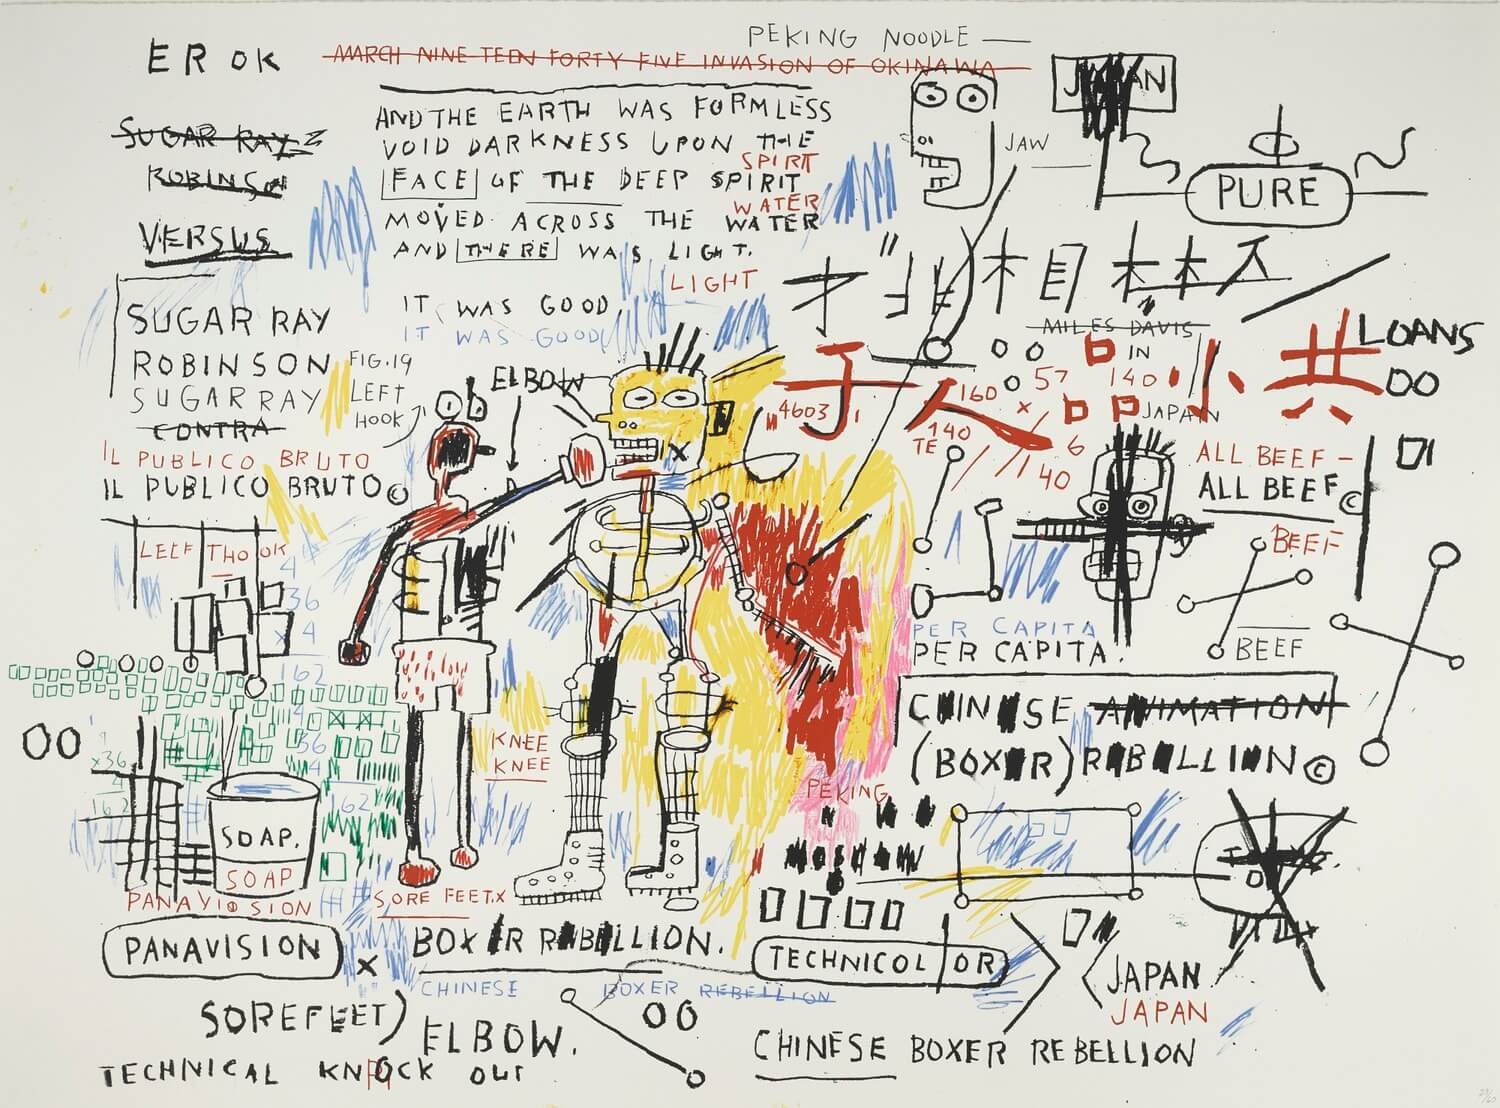 PEKING NOODLE —
ER OK
MARCH NINE TEEN FORTY FIVE INVASION OF OKINAWA
JAPAN
AND THE EARTH WAS FORMLESS
VOID DARKNESS UPON THE
SPIRIT
FACE OF THE DEEP SPIRIT
WATER
MOVED ACROSS THE WATER
AND THERE WAS LIGHT.
LIGHT
IT WAS GOOD
IT WAS GOOD
SUGAR RAY
ROBINSON
VERSUS
JAW
PURE
SUGAR RAY
ROBINSON
SUGAR RAY
CONTRA
IL PUBLICO BRUTO
IL PUBLICO BRUTO©
FIG.19
LEFT
HOOK
ELBOW
MILES DAVIS
IN
JAPAN
LOANS
OO
子 人
小 共
4603
160
57
140
x
6
140
TE
40
ALL BEEF –
ALL BEEF©
BEEF
BEEF
PER CAPITA
PER CAPITA.
LEEF THO OK
4
36
x 4
162
4
36
4
162
OO
x36
4
162
KNEE
KNEE
SOAP.
SOAP
PANAVISION
PANAVISION
SORE FEET.X
x
BOXER REBELLION.
CHINESE BOXER REBELLION
SOREFEET)
ELBOW.
OO
TECHNICAL KNOCK OUT
CHINESE ANIMATION
(BOXER) REBELLION ©
PEKING
MOSCOW
TECHNICOLOR
JAPAN
JAPAN
CHINESE BOXER REBELLION